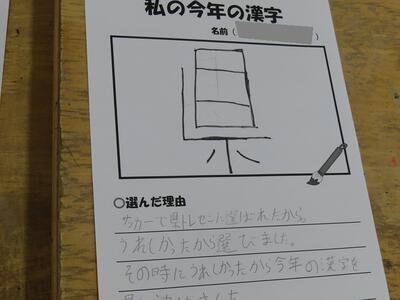 私の今年の漢字
名前( )
県
○選んだ理由
サッカーで県トレセンに選ばれたから。
うれしかったから選びました。
その時にうれしかったから今年の漢字を
県に決めました